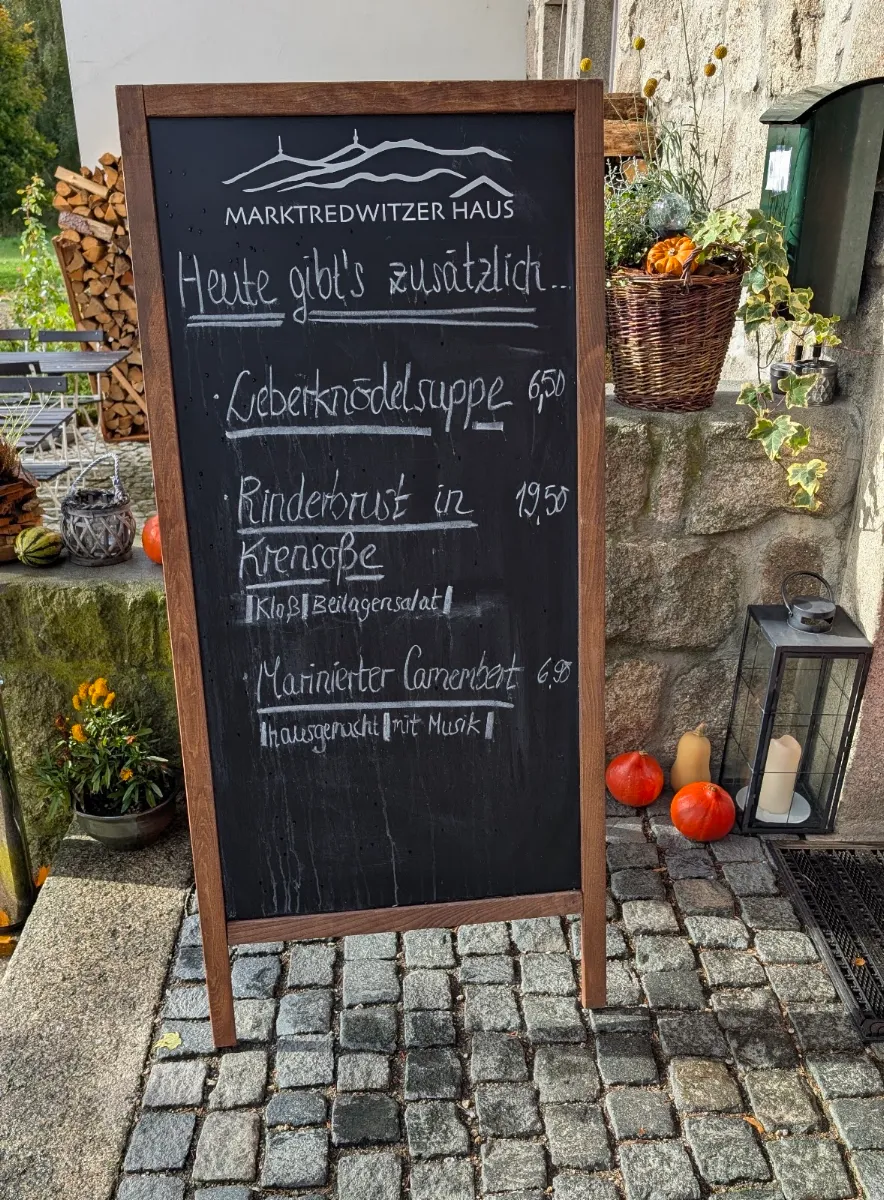 MARKTREDWITZER HAUS
Heute gibt's zusätzlich...
· Leberknödelsuppe 6,50
· Rinderbrust in 19,50
Krensoße
|Kloß|Beilagensalat|
· Marinierter Camembert 6,90
|hausgemacht|mit Musik|